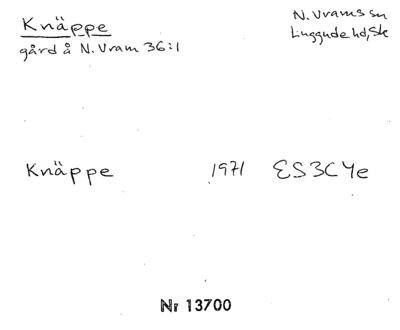 Knäppe
N. Vrams sn
gård å N. Vram 36:1
Luggude hd, Sk
Knäppe 1971 ES3C4e
Nr 13700